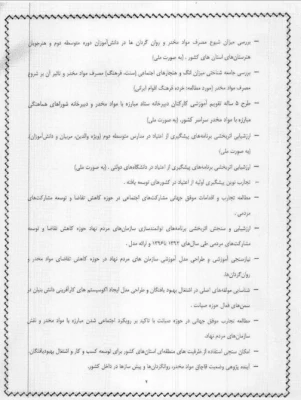 – بررسی میزان شیوع مصرف مواد مخدر و روان گردان ها در دانش‌آموزان دوره متوسطه دوم و هنرجویان
هنرستان‌های استان های کشور . (به صورت ملی)
– بررسی جامعه شناختی میزان انگ و هنجارهای اجتماعی (سنت، فرهنگ) مصرف مواد مخدر و تاثیر آن بر شروع
مصرف مواد مخدر (مورد مطالعه: خرده فرهنگ اقوام ایرانی)
– طرح ۵ ساله تقویم آموزشی کارکنان دبیرخانه ستاد مبارزه با مواد مخدر و دبیرخانه شوراهای هماهنگی
مبارزه با مواد مخدر سراسر کشور. (به صورت ملی)
– ارزشیابی اثربخشی برنامه‌های پیشگیری از اعتیاد در مدارس متوسطه دوم (ویژه والدین، مربیان و دانش‌آموزان).
(به صورت ملی)
– ارزشیابی اثربخشی برنامه‌های پیشگیری از اعتیاد در دانشگاه‌های دولتی . (به صورت ملی)
– تجارب نوین پیشگیری اولیه از اعتیاد در کشورهای توسعه یافته .
– مطالعه تجارب و اقدامات موفق جهانی مشارکت‌های اجتماعی در حوزه کاهش تقاضا و توسعه مشارکت‌های
مردمی .
– ارزشیابی و سنجش اثربخشی برنامه‌های توانمندسازی سازمان‌های مردم نهاد حوزه کاهش تقاضا و توسعه
مشارکت‌های مردمی طی سال‌های ۱۳۹۲ تا ۱۳۹۶ و ارائه مدل .
– نیازسنجی آموزشی و طراحی مدل آموزشی سازمان های مردم نهاد در حوزه کاهش تقاضای مواد مخدر و
روان‌گردان‌ها.
– شناسایی مولفه‌های اصلی در اشتغال بهبود یافتگان و طراحی مدل ایجاد اکوسیستم های کارآفرینی دانش بنیان در
سمن‌های فعال حوزه صیانت .
– مطالعه تجارب موفق جهانی در حوزه صیانت با تاکید بر رویکرد اجتماعی شدن مبارزه با مواد مخدر و نقش
سازمان‌های مردم نهاد.
– امکان سنجی استفاده از ظرفیت های منطقه‌ای استان‌های کشور برای توسعه کسب و کار و اشتغال بهبودیافتگان.
– آینده پژوهی وضعیت قاچاق مواد مخدر، روانگردان‌ها و پیش سازها در داخل کشور.